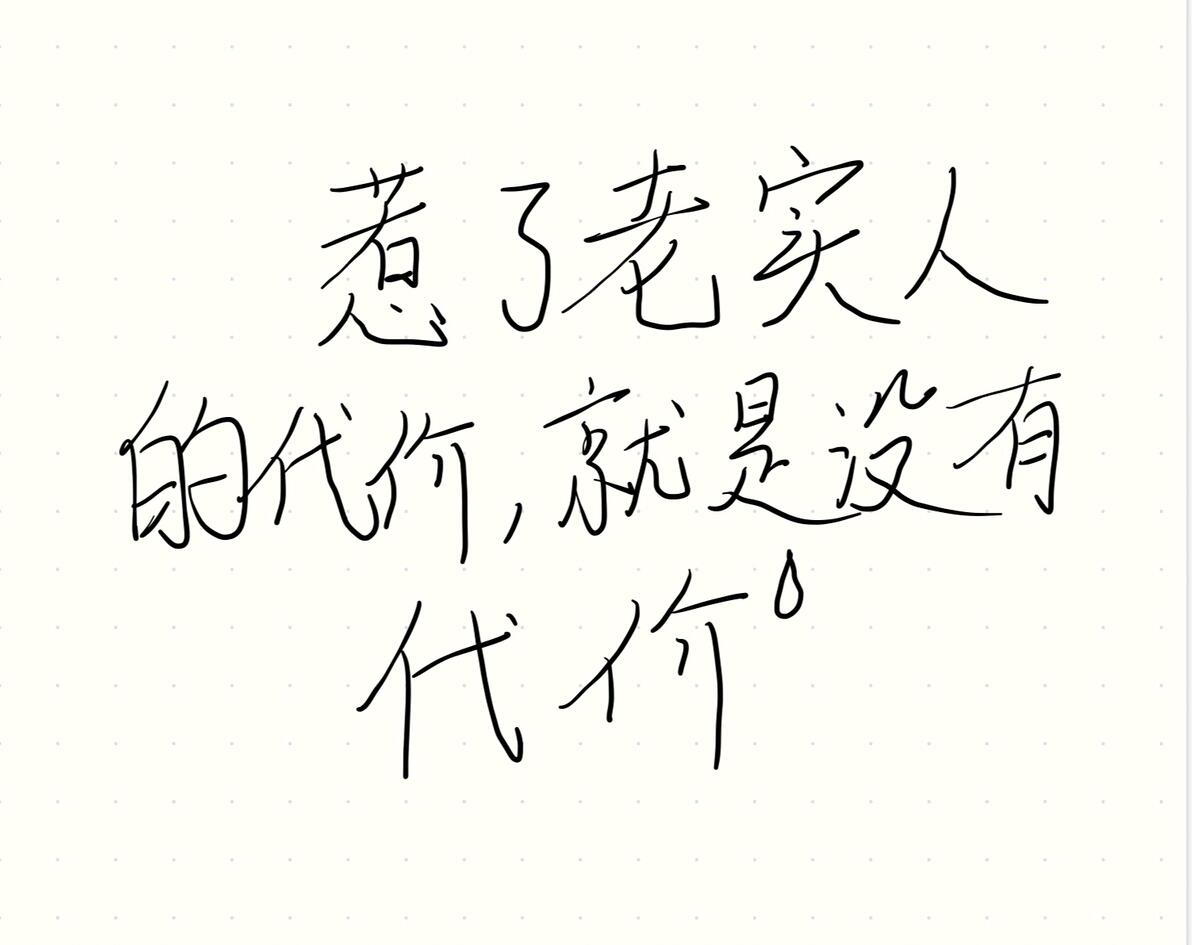 惹了老实人
的代价,就是没有
代价